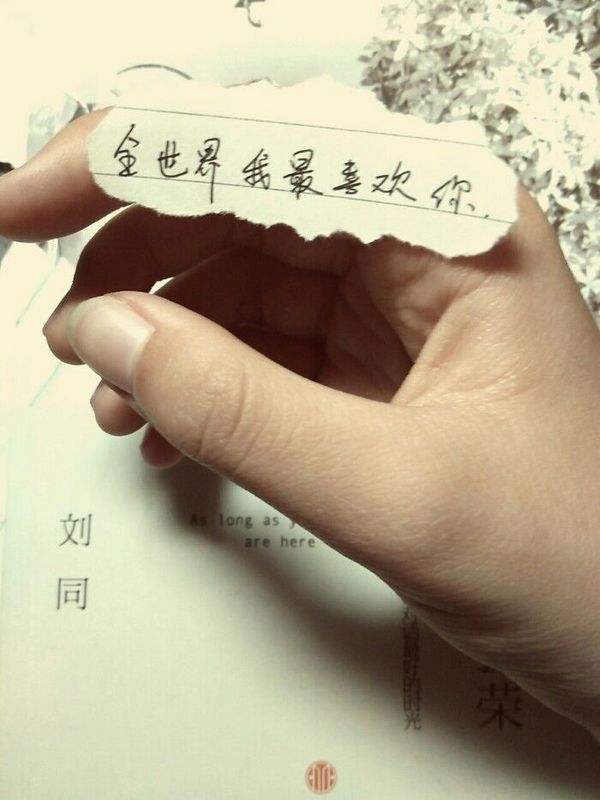 全世界我最喜欢你.
刘同
As long as y
are here
对话最好的时光
荣